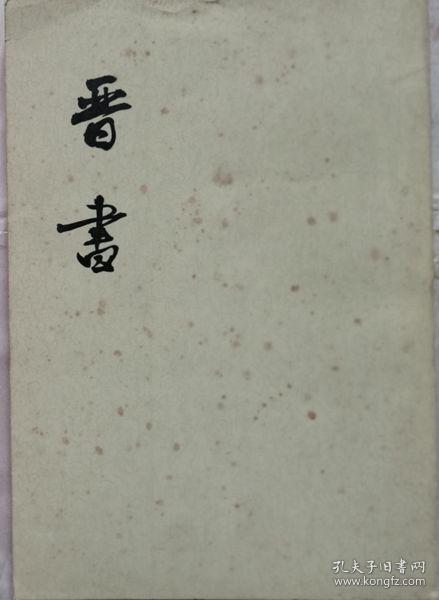 晋書
孔夫子旧書网
www.kongfz.com